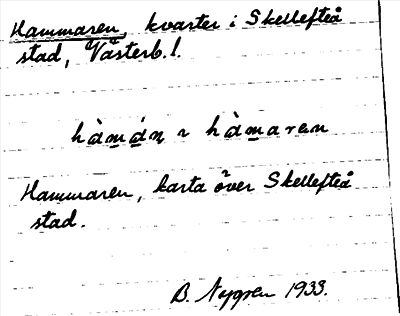 Hammaren, kvarter i Skellefteå
stad, Västerb.l.
hàmán ~ hàmaren
Hammaren, karta över Skellefteå
stad.
B. Nygren 1933.